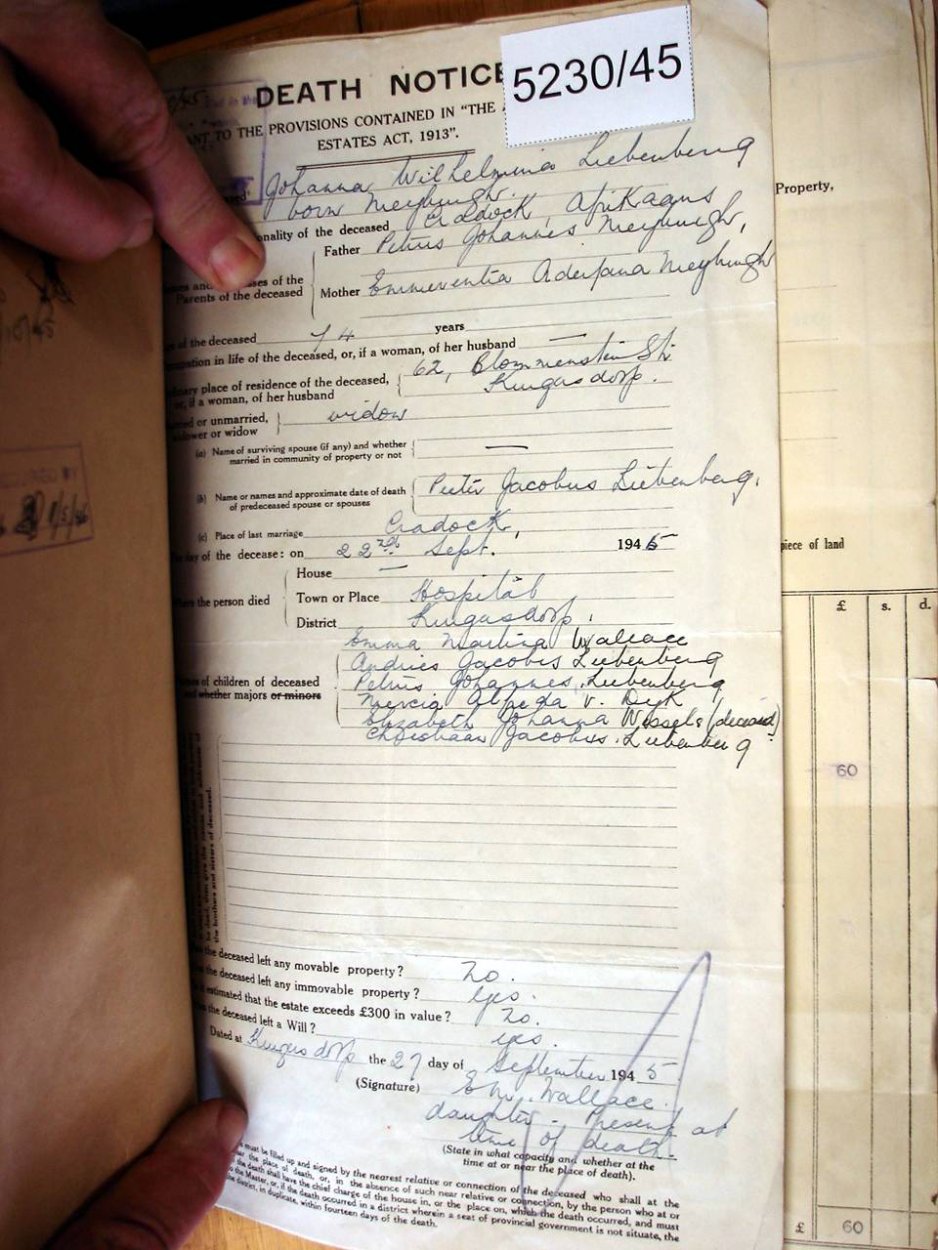 DEATH NOTICE
5230/45
TO THE PROVISIONS CONTAINED IN "THE
ESTATES ACT, 1913".
Johanna Wilhelmina Liebenberg
born Meyburgh.
nality of the deceased Cradock, Afrikaans
Father Petrus Johannes Meyburgh,
Parents of the deceased
Mother Emmerentia Meyburgh
of the deceased 74 years
in life of the deceased, or, if a woman, of her husband —
place of residence of the deceased, 62, Blommenstein St.
or, if a woman, of her husband Krugersdorp.
or unmarried, widow
or widow
(a) Name of surviving spouse (if any) and whether
married in community of property or not —
(b) Name or names and approximate date of death Pieter Jacobus Liebenberg.
of predeceased spouse or spouses
(c) Place of last marriage Cradock,
day of the decease: on 22nd Sept. 1945
House —
the person died Town or Place Hospital
District Krugersdorp.
Emma Martina Wallace
Andries Jacobus Liebenberg
of children of deceased Petrus Johannes Liebenberg
whether majors or minors v. Dyk
Elizabeth Johanna Wessels (deceased)
Christiaan Jacobus Liebenberg
the brothers and sisters of deceased.
the deceased left any movable property? No.
the deceased left any immovable property? yes.
estimated that the estate exceeds £300 in value? No.
the deceased left a Will? yes.
Dated at Krugersdorp the 27 day of September 1945
(Signature) E M. Wallace.
daughter - Present at
time of death.
(State in what capacity and whether at the
time at or near the place of death).
must be filled up and signed by the nearest relative or connection of the deceased who shall at the
the place of death, or, in the absence of such near relative or connection, by the person who at or
the death shall have the chief charge of the house in, or the place on, which the death occurred, and must
the Master, or, if the death occurred in a district wherein a seat of provincial government is not situate, the
district, in duplicate, within fourteen days of the death.
Property,
piece of land
£ s. d.
60
£ 60